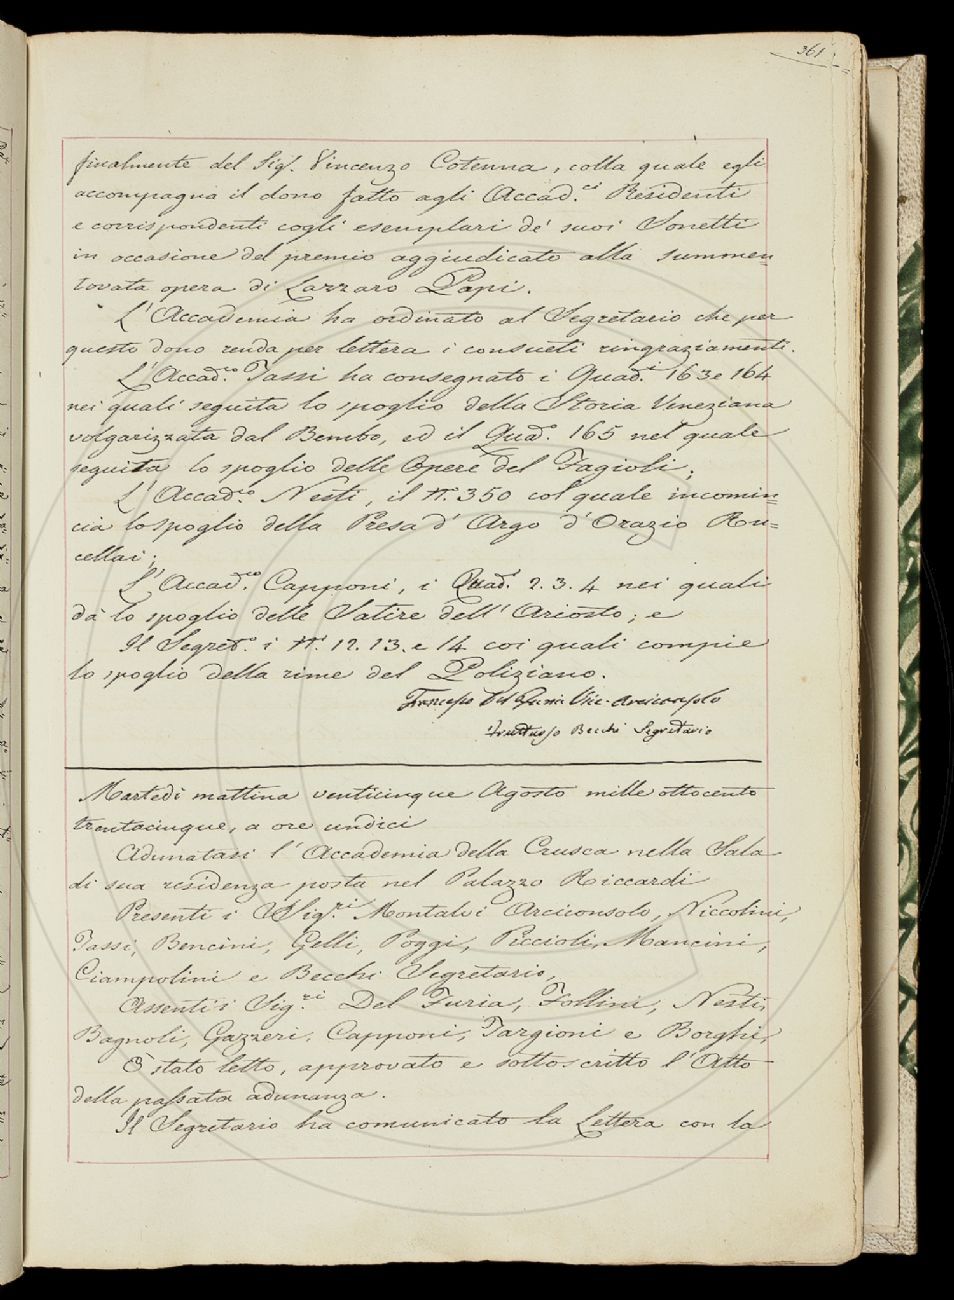 361
finalmente del Sig.r Vincenzo Cotenna, colla quale egli
accompagna il dono fatto agli Accad.ci Residenti
e corrispondenti cogli esemplari de' suoi Sonetti
in occasione del premio aggiudicato alla summen=
tovata opera di Lazzaro Papi.
L'Accademia ha ordinato al Segretario che per
questo dono renda per lettera i consueti ringraziamenti.
L'Accad.co Tassi ha consegnato i Quad.i 163 e 164
nei quali seguita lo spoglio della Storia Veneziana
volgarizzata dal Bembo, ed il Quad.o 165 nel quale
seguita lo spoglio delle Opere del Fagioli;
L'Accad.co Nesti, il N.o 350 col quale incomin=
cia lo spoglio della Presa d'Argo d'Orazio Ru=
cellai;
L'Accad.co Capponi, i Quad.i 2. 3. 4 nei quali
dà lo spoglio delle Satire dell'Ariosto; e
Il Segret.o i N.i 12. 13. e 14 coi quali compie
lo spoglio della rime del Poliziano.
Francesco Del Furia Vice-Arciconsolo
Fruttuoso Becchi Segretario
Martedì mattina venticinque Agosto mille ottocento
trentacinque, a ore undici
Adunatasi l'Accademia della Crusca nella Sala
di sua residenza posta nel Palazzo Riccardi
Presenti i Sig.ri Montalvi Arciconsolo, Niccolini,
Tassi, Bencini, Gelli, Poggi, Piccioli, Mancini,
Ciampolini e Becchi Segretario,
Assenti i Sig.ri Del Furia, Follini, Nesti,
Bagnoli, Gazzeri, Capponi, Targioni e Borghi,
È stato letto, approvato e sottoscritto l'Atto
della passata adunanza.
Il Segretario ha comunicato la Lettera con la